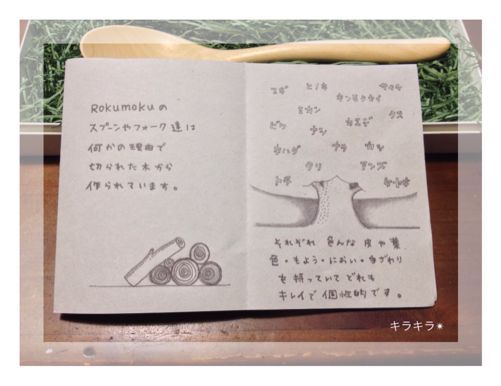 Rokumokuの
スプーンやフォーク達は
何かの理由で
切られた木から
作られています。
スギ ヒノキ サクラ
キンモクセイ
ミカン クス
ビワ ナシ カエデ
キハダ ブナ
クリ アンズ
トチ ケヤキ
それぞれ 色んな 皮や葉
色・もよう・におい・手ざわり
を 持っていて どれも
キレイで 個性的です。
キラキラ✴